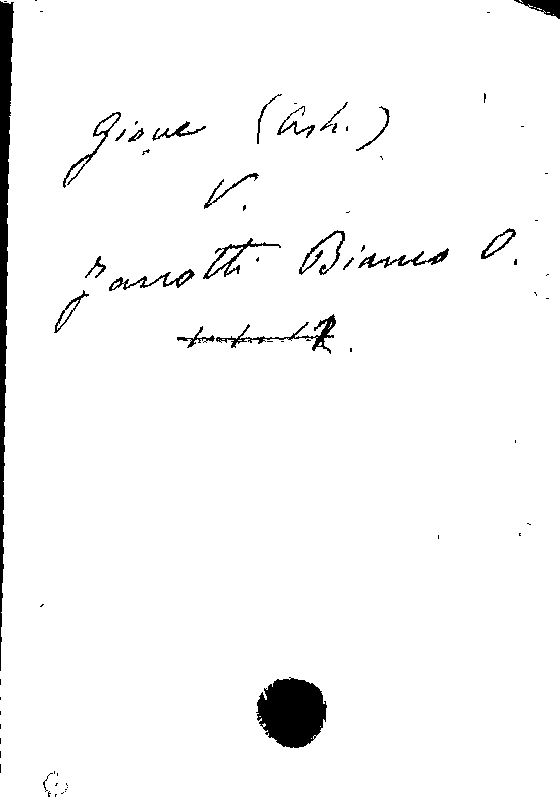 Giove (Ast.)
V.
Zanotti Bianco O.